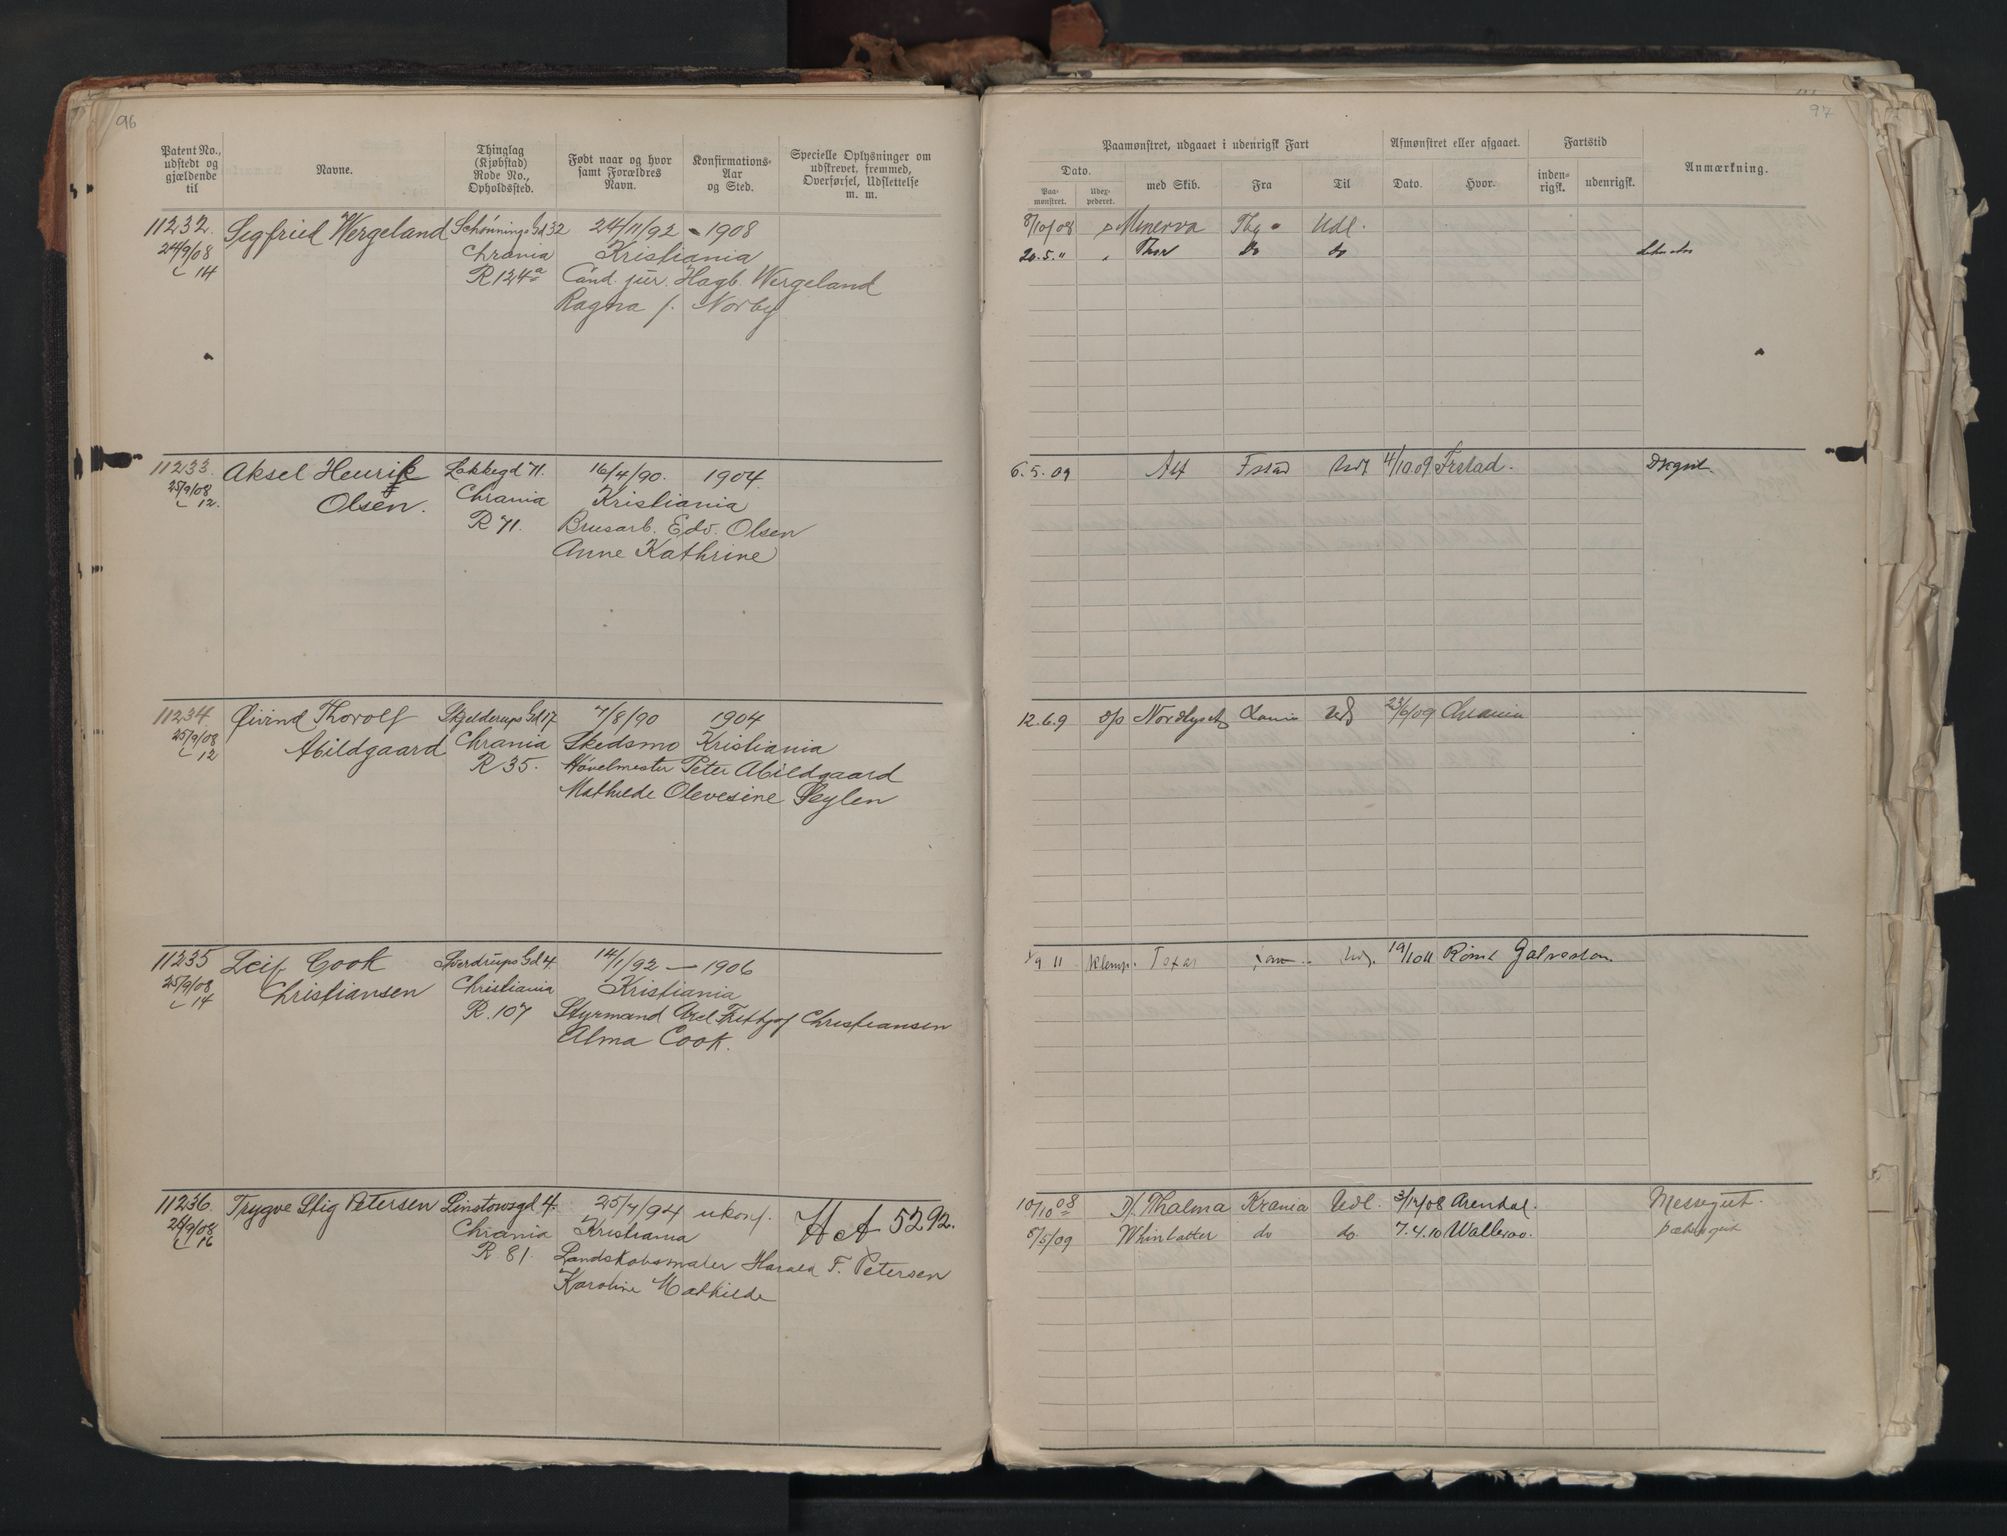 96
Patent No., udstedt og gjældende til
Navne.
Thinglag (Kjøbstad) Rode No., Opholdssted.
Født naar og hvor samt Forældres Navn.
Konfirmations-Aar og Sted.
Specielle Oplysninger om udskrevet, fremmed, Overførsel, Udslettelse m. m.
11232. Sigfried Wergeland Schønnings Gd 32 24/11/92 - 1908
24/9/08 Chrania Kristiania
14 R 124a Cand. jur. Hagb. Wergeland
Ragna f. Norby
11233. Aksel Henrik Lakkegd 71. 16/4/90. 1904.
25/9/08 Olsen. Chrania Kristiania
12. R 71. Brusarb. Edv. Olsen
Anne Kathrine
11234. Øivind Thorolf Skjelderups Gd 17 7/8/90 1904
25/9/08 Abildgaard Chrania Skedsmo Kristiania
12 R 35. Høvelmester Peter Abildgaard
Mathilde Olevesine
11235 Leif Cook Sverdrups Gd 4. 14/1/92 — 1906
25/9/08 Christiansen Christiania Kristiania
14 R. 107 Styrmand Axel Frithjof Christiansen
Alma Cook.
11236. Trygve Stig Petersen Linstowsgd 4. 25/7/94 ukonf. H A 5292.
Chrania Kristiania
16 R. 81. Landskabsmaler Harald F. Petersen
Karoline Mathilde
97
Paamønstret, udgaaet i udenrigsk Fart
Afmønstret eller afgaaet.
Fartstid
Anmærkning.
Dato.
Paamønstret.
Udexpederet.
med Skib.
Fra
Til
Dato.
Hvor.
indenrigsk.
udenrigsk.
8/10/08 Minerva Tbg Udl.
20.5." Thor do do
6.5.09 Alf Fstad Udl 4/10 09 Frstad.
12.6.9 Nordlyset 23/6/09 Chrania
11 Texas Udl. 19/10 11 Rømt Galveston
10/10 08 Thalma Krania Udl. 3/12/08 Arendal. Messegut.
8/5/09 Whinlatter do do. 7.4.10 Wallaroo.